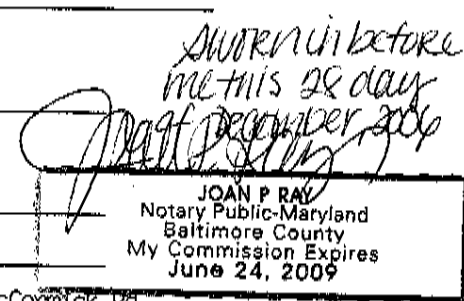 Sworn in before
me this 28 day
of December, 2006
JOAN P RAY
Notary Public-Maryland
Baltimore County
My Commission Expires
June 24, 2009